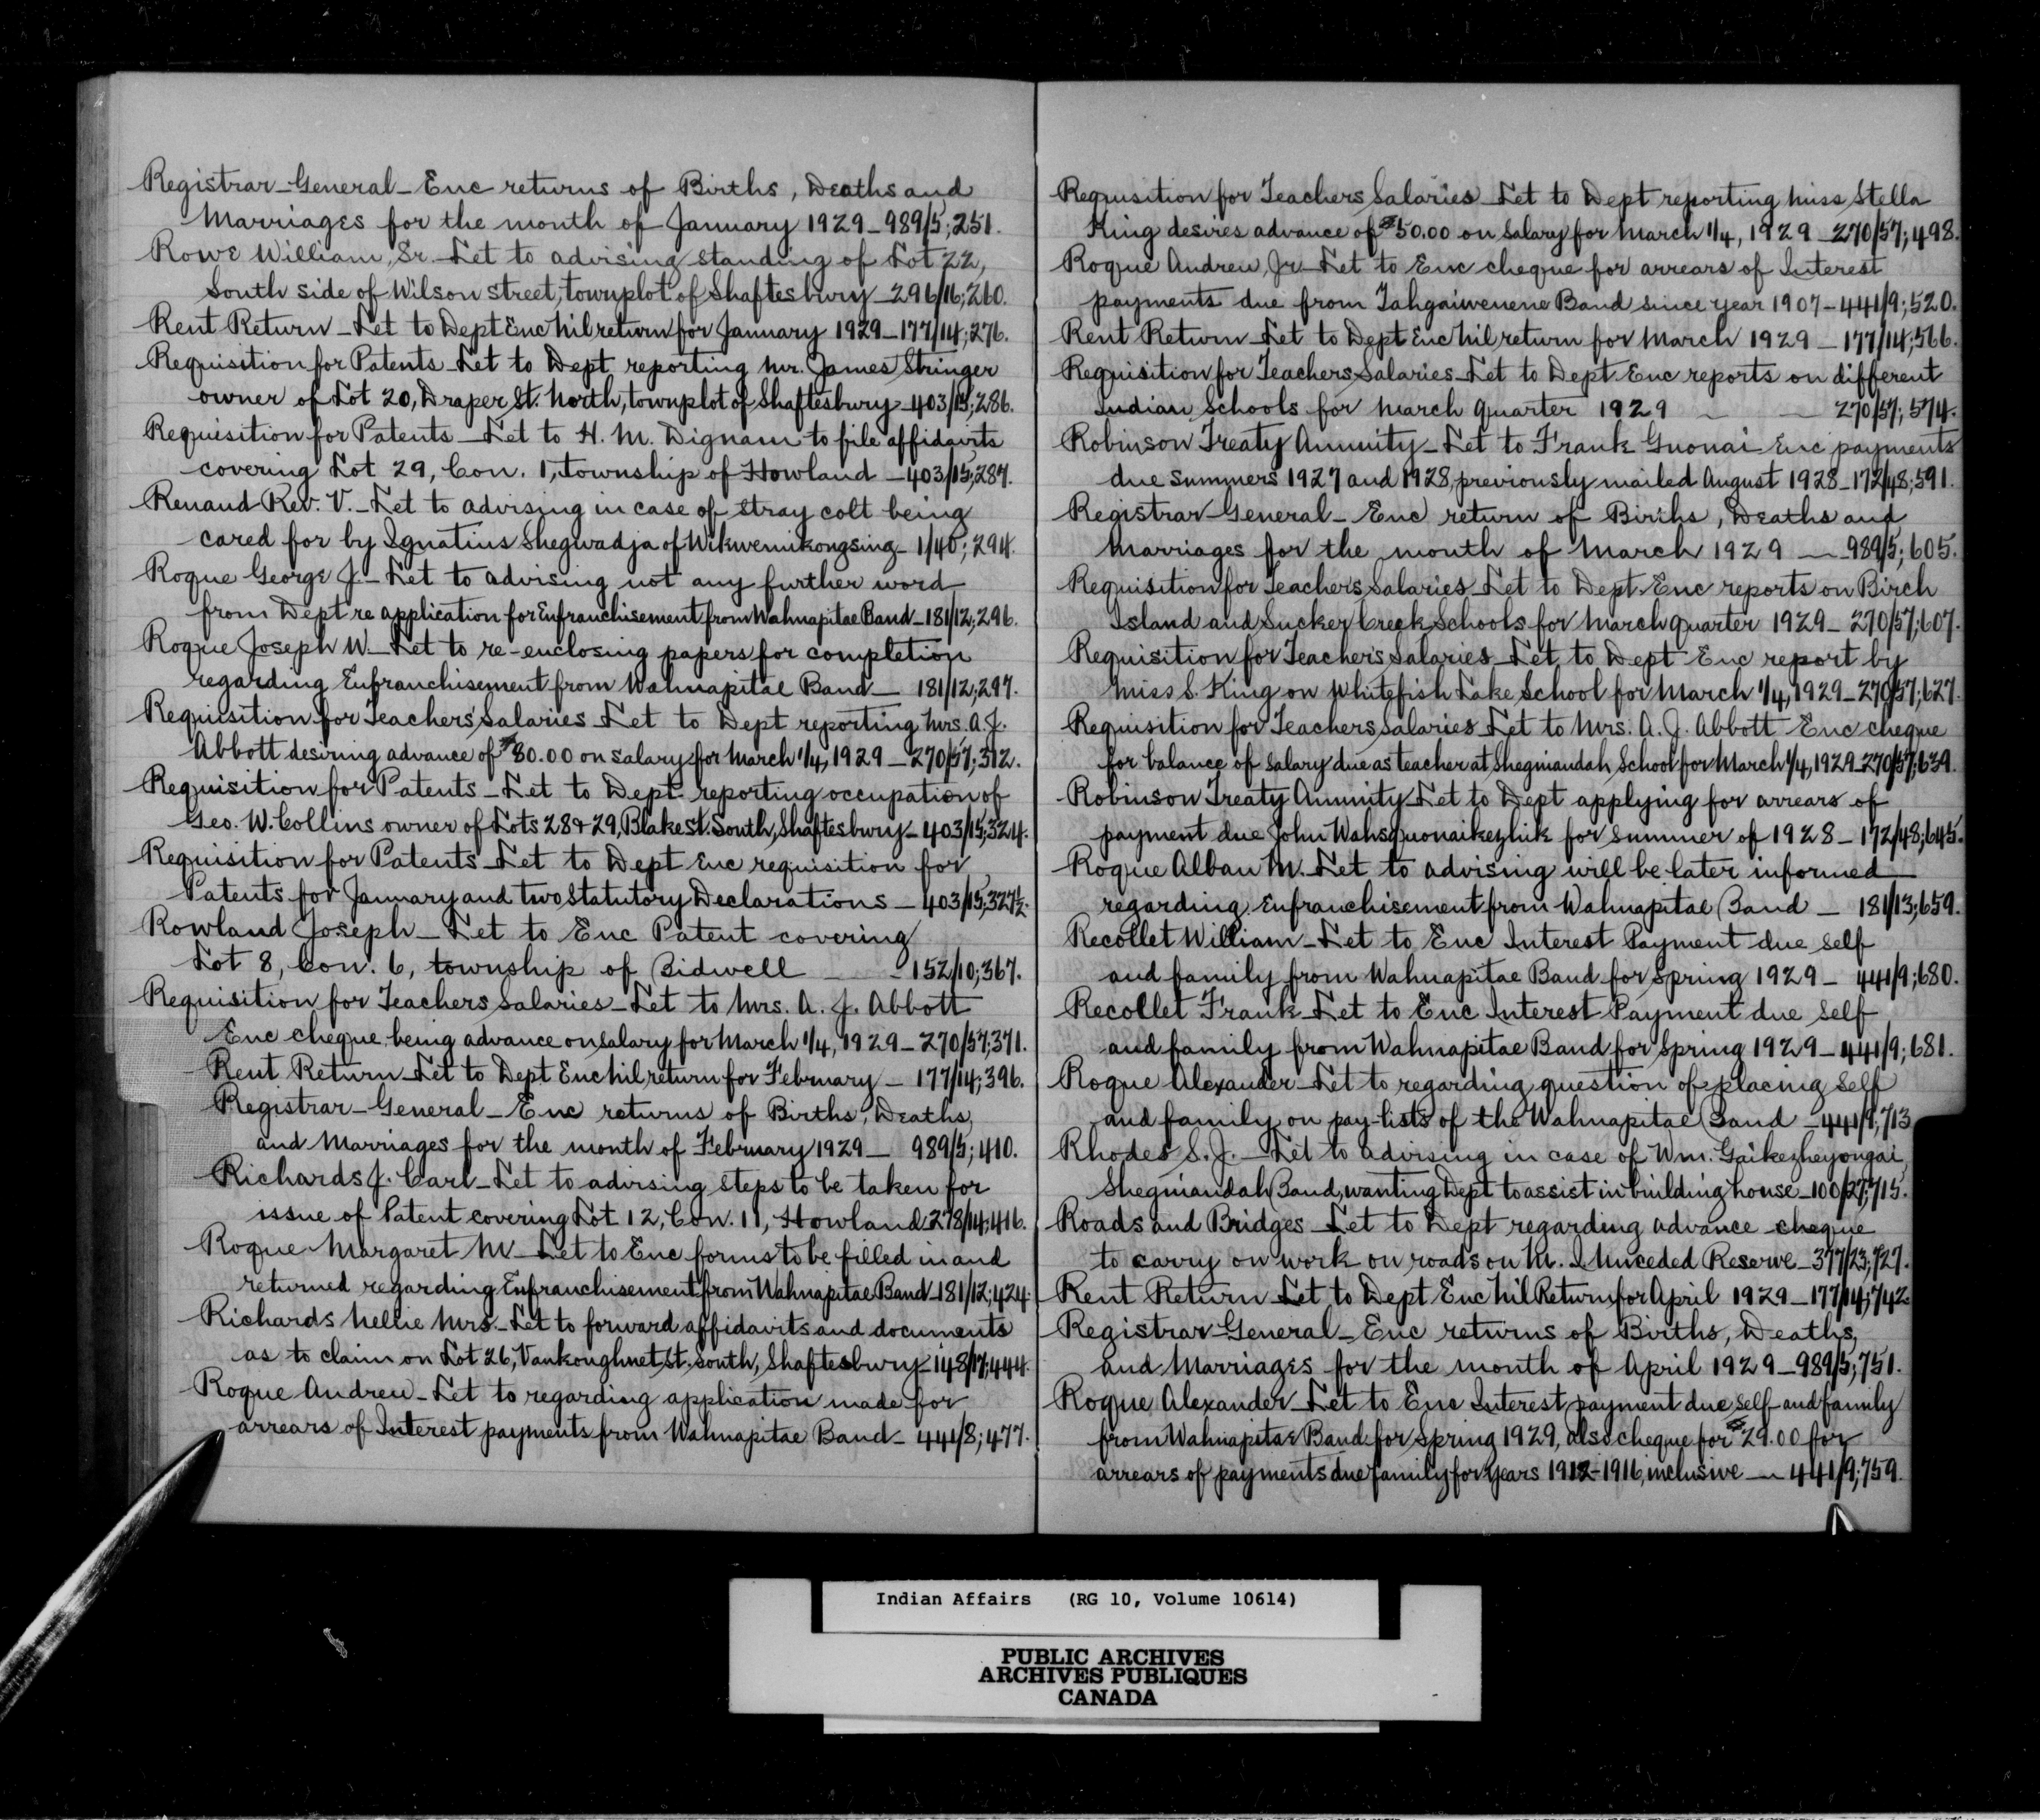 Registrar-General- Enc returns of Births, Deaths and
Marriages for the month of January 1929 - 989/5; 251.
Rowe William, Sr. Let to advising standing of Lot 22,
South side of Wilson street, townplot of Shaftesbury - 296/16; 260.
Rent Return - Let to Dept Enc Nil return for January 1929 - 177/14; 276.
Requisition for Patents - Let to Dept reporting Mr. James Stringer
owner of Lot 20, Draper St. North, townplot of Shaftesbury - 403/15; 286.
Requisition for Patents - Let to H. M. Dignam to file affidavits
covering Lot 29, Con. 1, township of Howland - 403/15; 287.
Renaud Rev. V. - Let to advising in case of stray colt being
cared for by Ignatius Shegwadja of Wikwemikongsing - 1/40; 294.
Roque George J. - Let to advising not any further word
from Dept re application for Enfranchisement from Wahnapitae Band - 181/12; 296.
Roque Joseph W. - Let to re-enclosing papers for completion
regarding Enfranchisement from Wahnapitae Band - 181/12; 297.
Requisition for Teachers' Salaries - Let to Dept reporting Mrs. A. J.
Abbott desiring advance of $80.00 on salary for March 1/4, 1929 - 270/57; 312.
Requisition for Patents - Let to Dept reporting occupation of
Geo. W. Collins owner of Lots 28 & 29, Blake St. South, Shaftesbury - 403/15; 324.
Requisition for Patents - Let to Dept Enc requisition for
Patents for January and two Statutory Declarations - 403/15; 327½.
Rowland Joseph - Let to Enc Patent covering
Lot 8, Con. 6, township of Bidwell - 152/10; 367.
Requisition for Teachers Salaries - Let to Mrs. A. J. Abbott
Enc cheque being advance on salary for March 1/4, 1929 - 270/57; 371.
Rent Return - Let to Dept Enc Nil return for February - 177/14; 396.
Registrar-General - Enc returns of Births, Deaths,
and Marriages for the month of February 1929 - 989/5; 410.
Richards J. Carl - Let to advising steps to be taken for
issue of Patent covering Lot 12, Con. 11, Howland 278/14; 416.
Roque Margaret M - Let to Enc forms to be filled in and
returned regarding Enfranchisement from Wahnapitae Band - 181/12; 424.
Richards Nellie Mrs - Let to forward affidavits and documents
as to claim on Lot 26, Vankoughnet St. South, Shaftesbury 148/17; 444.
Roque Andrew - Let to regarding application made for
arrears of Interest payments from Wahnapitae Band - 441/8; 477.
Requisition for Teachers Salaries - Let to Dept reporting Miss Stella
King desires advance of $50.00 on salary for March 1/4, 1929 - 270/57; 498.
Roque Andrew, Jr - Let to Enc cheque for arrears of Interest
payments due from Tahgaiwenene Band since year 1907 - 441/9; 520.
Rent Return - Let to Dept Enc Nil return for March 1929 - 177/14; 566.
Requisition for Teachers Salaries - Let to Dept Enc reports on different
Indian Schools for March quarter 1929 - - 270/57; 574.
Robinson Treaty Annuity - Let to Frank Guonai Enc payments
due summers 1927 and 1928, previously mailed August 1928 - 172/48; 591.
Registrar-General - Enc return of Births, Deaths and
Marriages for the month of March 1929 - 989/5; 605.
Requisition for Teachers Salaries - Let to Dept Enc reports on Birch
Island and Sucker Creek Schools for March quarter 1929 - 270/57; 607.
Requisition for Teachers Salaries - Let to Dept Enc report by
Miss S. King on Whitefish Lake School for March 1/4, 1929 - 270/57; 627.
Requisition for Teachers Salaries - Let to Mrs. A. J. Abbott Enc cheque
for balance of salary due as teacher at Shegniandah School for March 1/4, 1929 - 270/57; 639.
Robinson Treaty Annuity - Let to Dept applying for arrears of
payment due John Wahsquonaikezhik for summer of 1928 - 172/48; 645.
Roque Alban M. - Let to advising will be later informed
regarding Enfranchisement from Wahnapitae Band - 181/13; 659.
Recollet William - Let to Enc Interest Payment due self
and family from Wahnapitae Band for Spring 1929 - 441/9; 680.
Recollet Frank - Let to Enc Interest Payment due self
and family from Wahnapitae Band for Spring 1929 - 441/9; 681.
Roque Alexander - Let to regarding question of placing self
and family on pay-lists of the Wahnapitae Band - 441/9; 713
Rhodes S. J. - Let to advising in case of Wm. Gaikezheyongai,
Shegniandah Band, wanting Dept to assist in building house - 100/27; 715.
Roads and Bridges - Let to Dept regarding advance cheque
to carry on work on roads on M. I. Unceded Reserve - 377/23; 727.
Rent Return - Let to Dept Enc Nil Return for April 1929 - 177/14; 742
Registrar-General - Enc returns of Births, Deaths,
and Marriages for the month of April 1929 - 989/5; 751.
Roque Alexander - Let to Enc Interest payment due self and family
from Wahnapitae Band for Spring 1929, also cheque for $29.00 for
arrears of payments due family for years 1912-1916, inclusive - 441/9; 759.
Indian Affairs (RG 10, Volume 10614)
PUBLIC ARCHIVES
ARCHIVES PUBLIQUES
CANADA